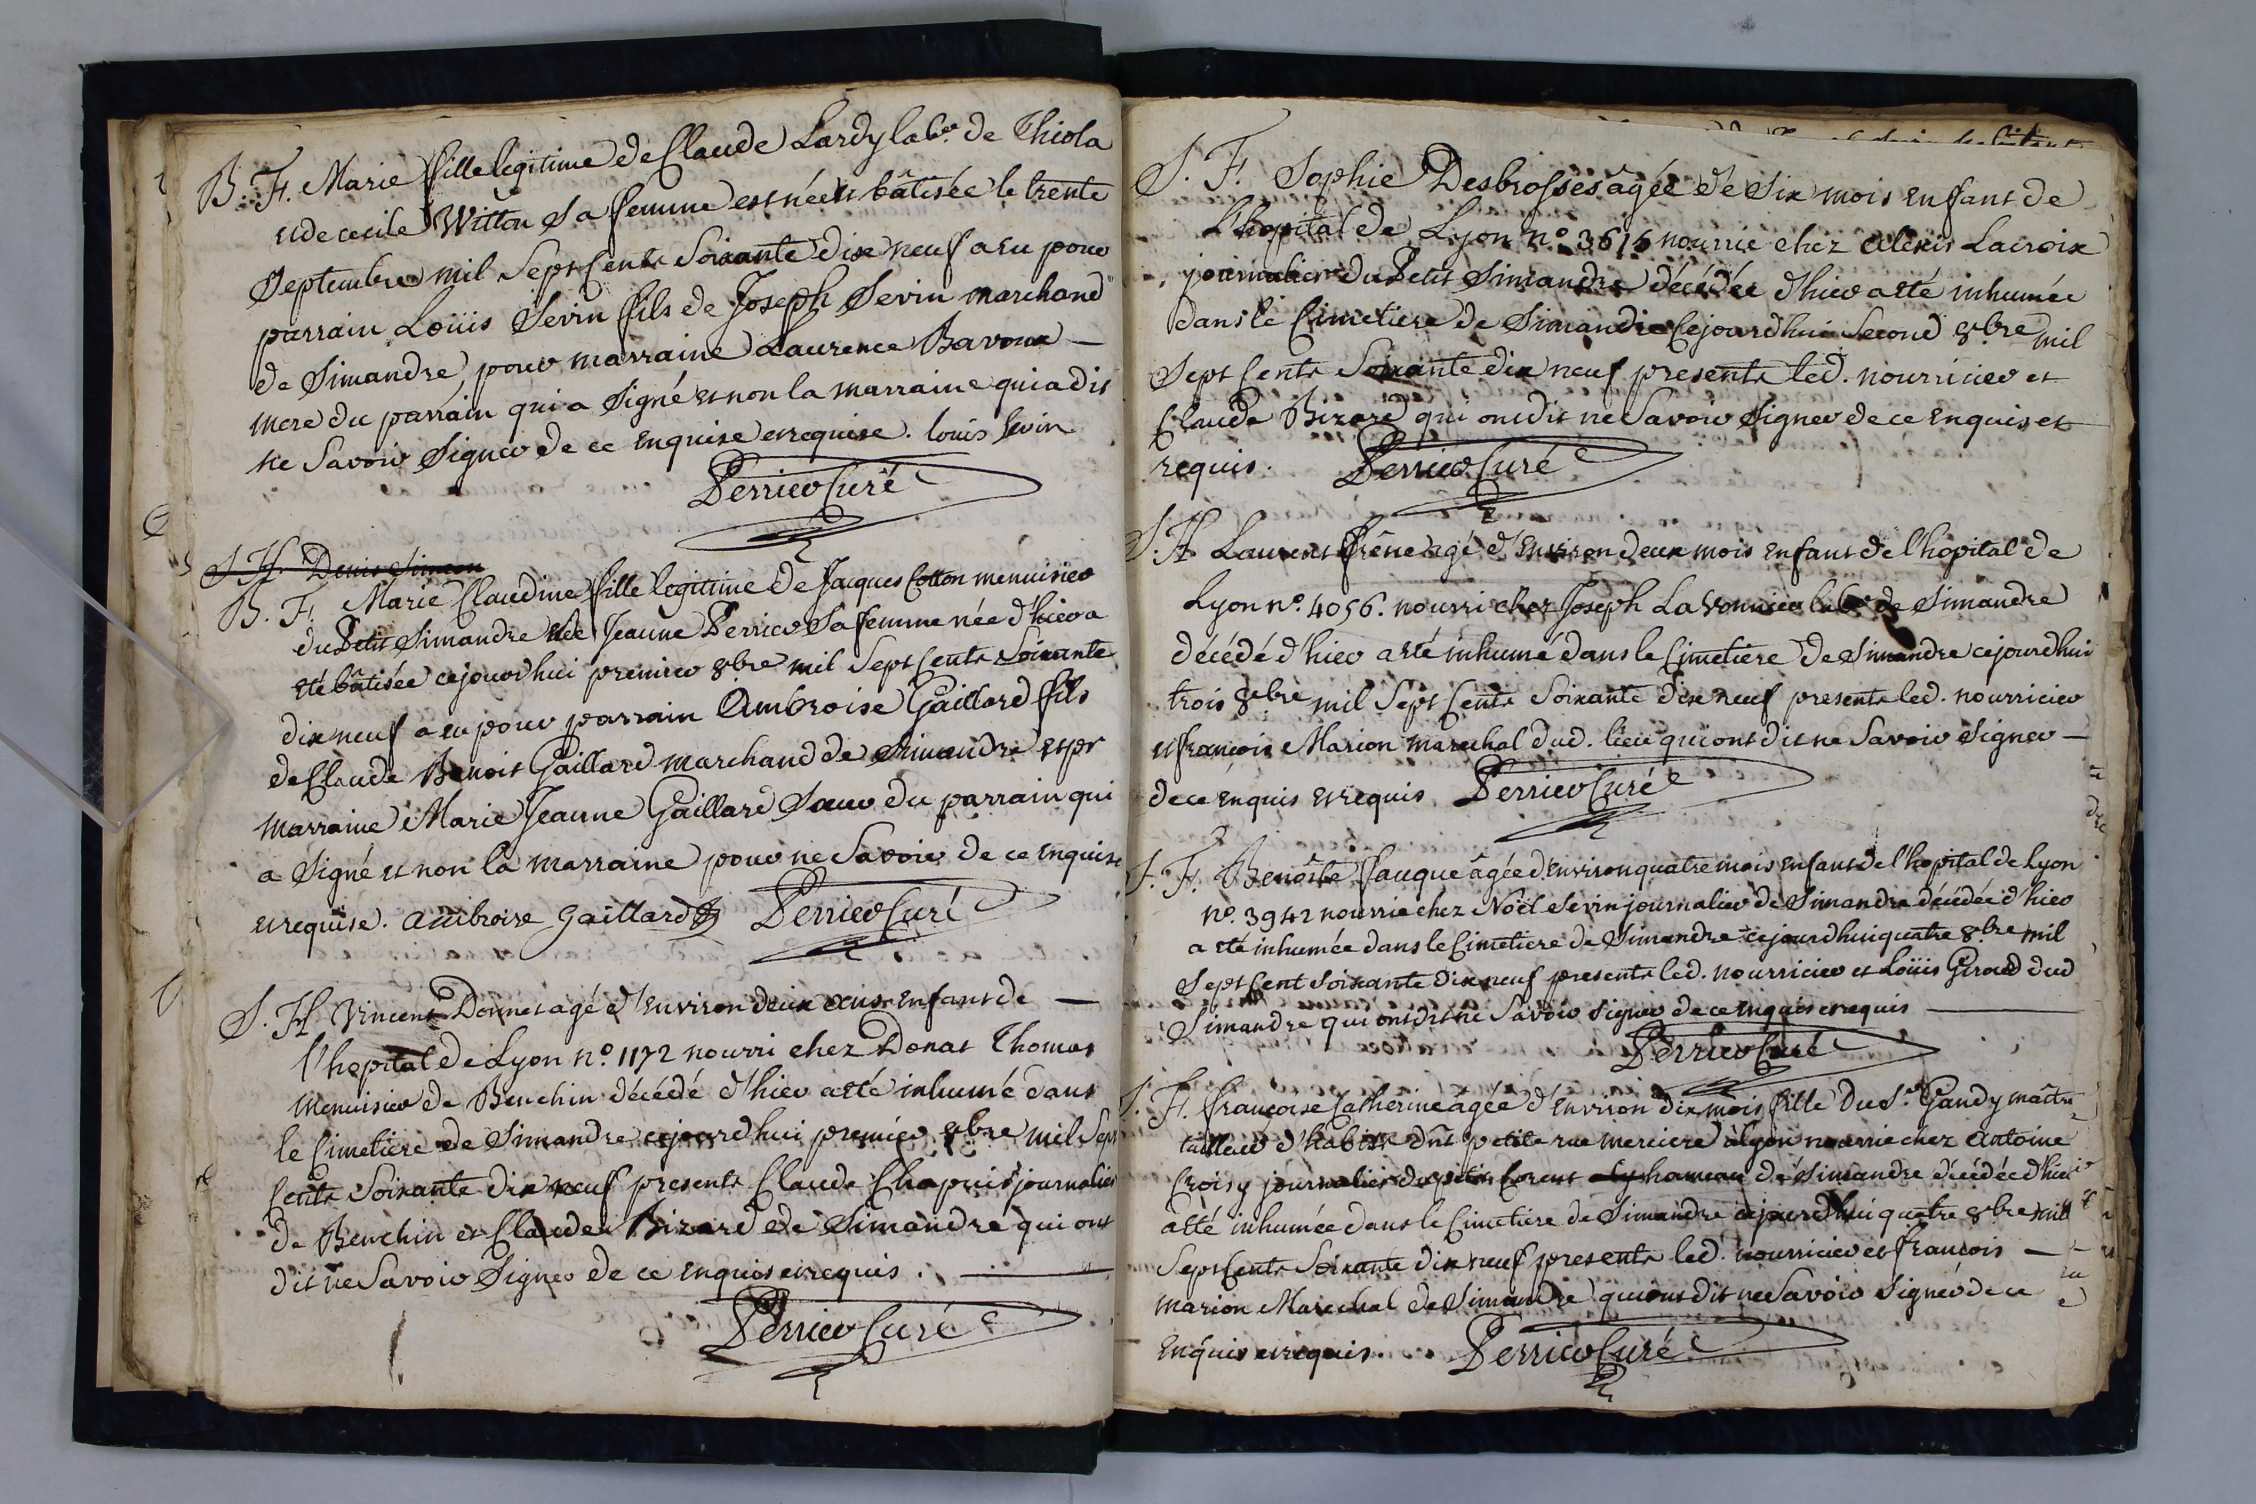 B. F. Marie fille legitime de Claude Lardy labr. de Thiola
et de cecile Witton Sa femme est née et bâtisée le trente
Septembre mil Sept Cents Soixante dix neuf a eu pour
parrain Loüis Sevin fils de Joseph Sevin marchand
de Simandre, pour marraine Laurence Bavoux —
mere du parrain qui a Signé et non la marraine qui a dit
ne Savoir Signer de ce enquise et requise. louis sevin
Perrier Curé
S. H. Denis Simeon
B. F. Marie Claudine fille legitime de Jacques Cotton menuisier
du Petit Simandre et de Jeanne Perrier Sa femme née d'hier a
eté bâtisée cejourd'hui premier 8bre mil Sept Cents Soixante
dix neuf a eu pour parrain Ambroise Gaillard fils
de Claude Benoit Gaillard marchand de Simandre et pr
marraine Marie Jeanne Gaillard Sœur du parrain qui
a Signé et non la marraine pour ne Savoir de ce enquise
et requise. ambroise gaillard Perrier Curé
S. H. Vincent Donnet agé d'environ deux ans enfant de —
l'hopital de Lyon no. 1172 nourri chez Donat Thomas
menuisier de Banchin décédé d'hier a eté inhumé dans
le Cimetiere de Simandre cejourd'hui premier 8bre mil Sept
Cents Soixante dix neuf presents Claude Chapuis journalier
de Banchin et Claude Bizard de Simandre qui ont
dit ne Savoir Signer de ce enquis et requis. —
Perrier Curé
S. F. Sophie Desbrosses âgée de Six mois enfant de
l'hopital de Lyon no. 3615 nourrie chez alexis Lacroix
journalier du Petit Simandre décédée d'hier a eté inhumée
dans le Cimetiere de Simandre Cejourd'hui Second 8bre mil
Sept Cents Soixante dix neuf presents led. nourricier et
Claude Bizard qui ont dit ne Savoir Signer de ce enquis et
requis. Perrier Curé
S. H. Laurent frêne agé d'environ deux mois enfant de l'hopital de
Lyon no. 4056. nourri chez Joseph La vonnier labr. de Simandre
décédé d'hier a eté inhumé dans le Cimetiere de Simandre cejourdhui
trois 8bre mil Sept Cents Soixante dix neuf presents led. nourricier
et françois Marion marechal dud. lieu qui ont dit ne Savoir Signer —
de ce enquis et requis Perrier Curé
S. F. Benoîte fauque âgée d'environ quatre mois enfant de l'hopital de Lyon
no. 3942 nourrie chez Noël Sevin journalier de Simandre décédée d'hier
a eté inhumée dans le Cimetiere de Simandre cejourdhui quatre 8bre mil
Sept Cent Soixante dix neuf presents led. nourricier et Loüis Giraud dud
Simandre qui ont dit ne Savoir Signer de ce enquis et requis —
Perrier Curé
S. F. françoise Catherine âgée d'environ dix mois fille du Sr. Gandy maître
tailleur d'habits dt petite rue merciere à lyon nourrie chez antoine
Croisy journalier du petit Corent hameau de Simandre décédée d'hier
a eté inhumée dans le Cimetiere de Simandre cejourd'hui quatre 8bre mil
Sept Cents Soixante dix neuf presents led. nourricier et françois —
marion Marechal de Simandre qui ont dit ne Savoir Signer de ce
enquis et requis. Perrier Curé